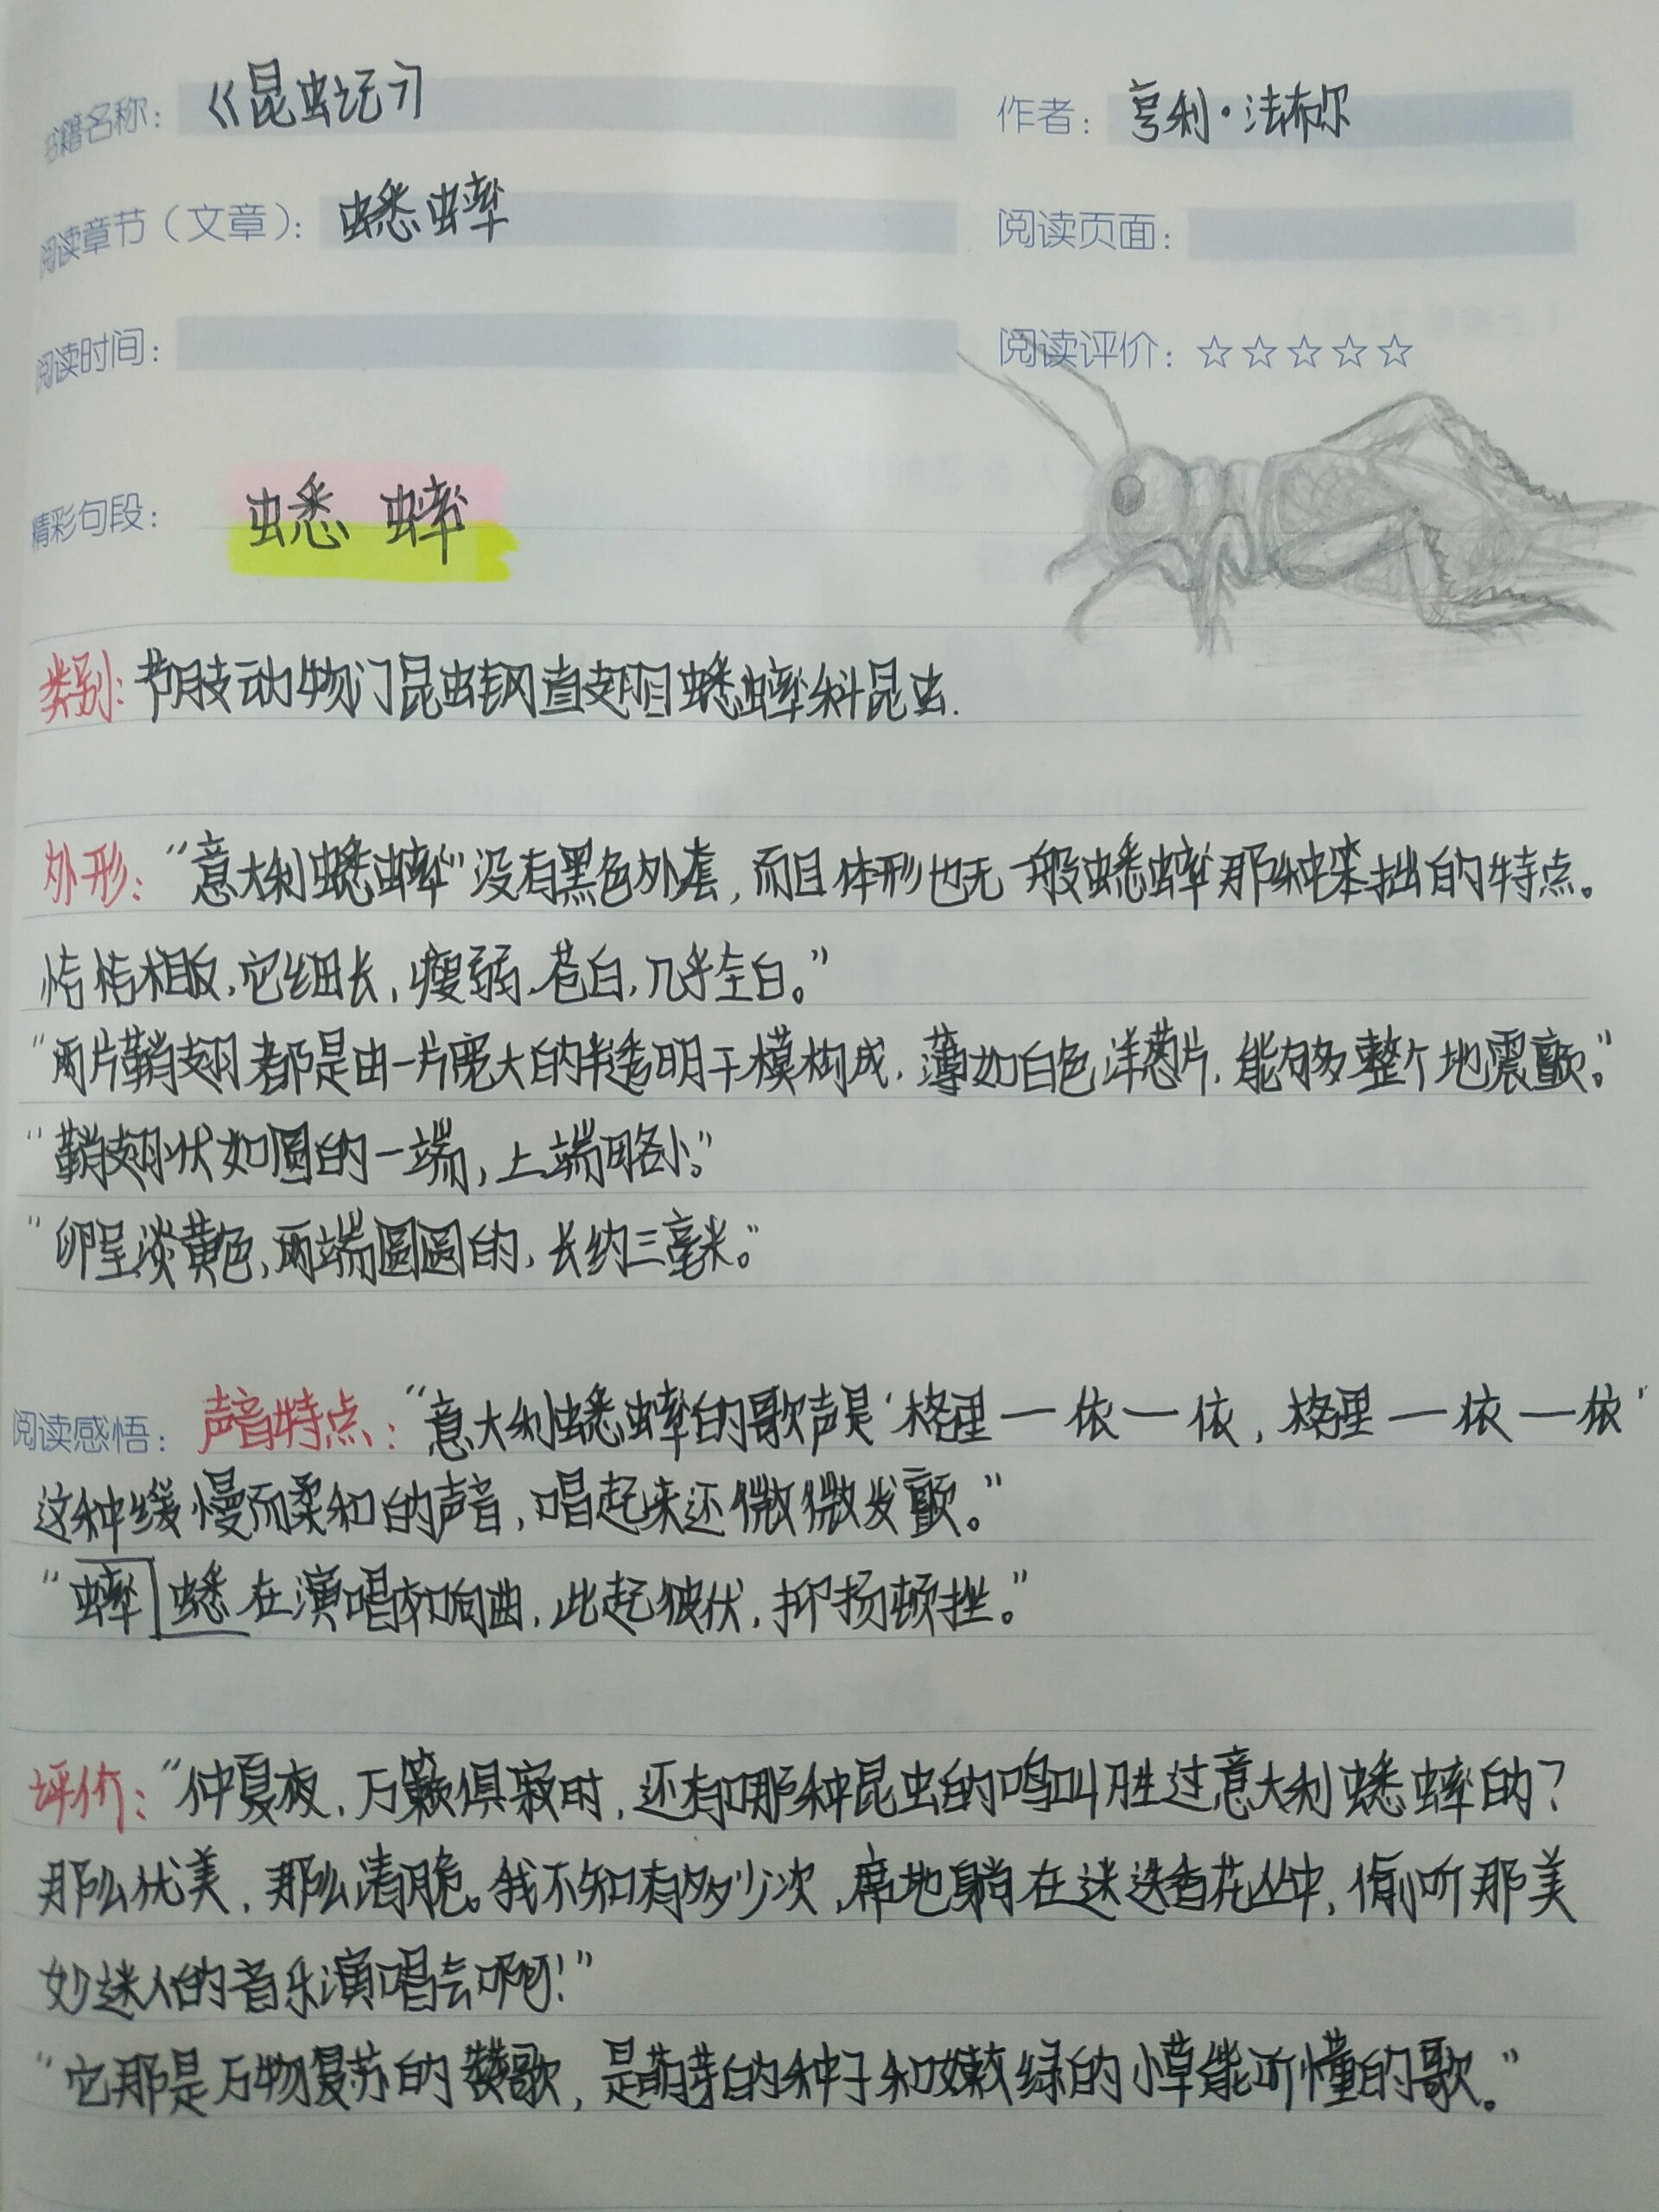 书籍名称： 《昆虫记》 作者： 亨利·法布尔
阅读章节（文章）： 蟋蟀 阅读页面：
阅读时间： 阅读评价：☆☆☆☆☆
精彩句段： 蟋蟀
类别：节肢动物门昆虫钢直翅目蟋蟀科昆虫.
外形：“意大利蟋蟀”没有黑色外套，而且体形也无一般蟋蟀那种笨拙的特点。
恰恰相反，它细长，瘦弱、苍白，几乎全白。”
“两片鞘翅都是由一片宽大的半透明干模构成，薄如白色洋葱片，能够整个地震颤。”
“鞘翅状如圆的一端，上端略小。”
“卵呈淡黄色，两端圆圆的，长约三毫米。”
阅读感悟： 声音特点：“意大利蟋蟀的歌声是‘格里—依—依，格里—依—依’
这种缓慢而柔和的声音，唱起来还微微发颤。”
“蟀蟋在演唱夜响曲，此起彼伏，抑扬顿挫。”
评价：“仲夏夜，万籁俱寂时，还有哪种昆虫的鸣叫胜过意大利蟋蟀的？
那么优美，那么清脆。我不知有多少次，席地躺在迷迭香花丛中，偷听那美
妙迷人的音乐演唱会啊！”
“它那是万物复苏的赞歌，是萌芽的种子和嫩绿的小草能听懂的歌。”